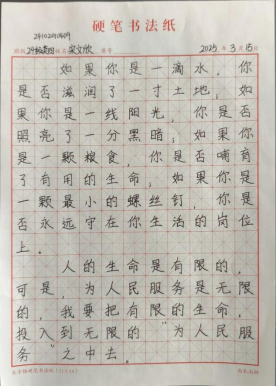 硬笔书法纸
2025年3月15日
如果你是一滴水，你
是否滋润了一寸土地，如
果你是一线阳光，你是否
照亮了一分黑暗；如果你
是一颗粮食，你是否哺育
了有用的生命，如果你是
一颗最小的螺丝钉，你是
否永远守在你生活的岗位
上。
人的生命是有限的，
可是，为人民服务是无限
的，我要把有限的生命，
投入到无限的“为人民服
务”之中去。